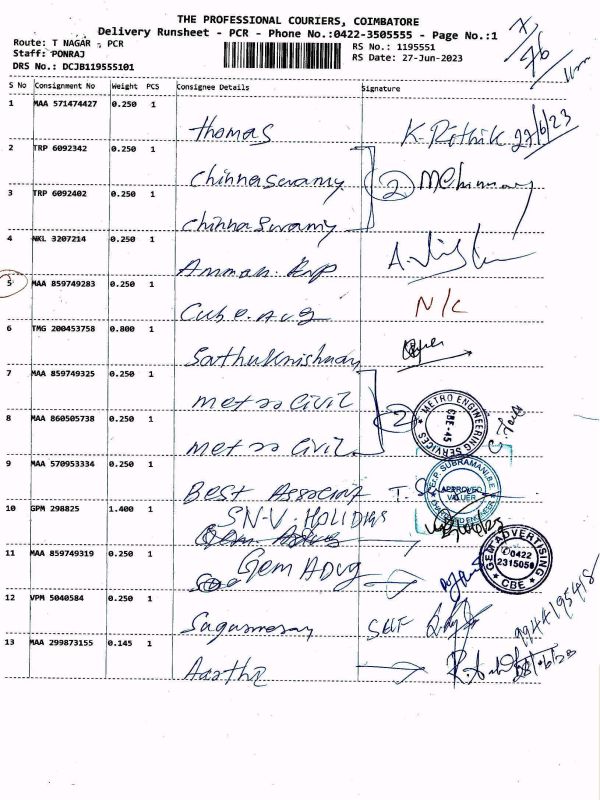 THE PROFESSIONAL COURIERS, COIMBATORE
Delivery Runsheet - PCR - Phone No.:0422-3505555 - Page No.:1
Route: T NAGAR - PCR
Staff: PONRAJ
DRS No.: DCJB119555101
RS No.: 1195551
RS Date: 27-Jun-2023
S No Consignment No Weight PCS Consignee Details Signature
1 MAA 571474427 0.250 1
Thomas K. Rithik 27/6/23
2 TRP 6092342 0.250 1
Chinnaswamy 2
3 TRP 6092402 0.250 1
Chinnaswamy
4 NKL 3207214 0.250 1
Amman
5 MAA 859749283 0.250 1
Cube Avg N/C
6 TMG 200453758 0.800 1
Sathukrishnan
7 MAA 859749325 0.250 1
metro civil
8 MAA 860505738 0.250 1
metro civil 2
METRO ENGINEERING SERVICES
CBE-45
9 MAA 570953334 0.250 1
Best Associat
Er.P. SUBRAMANI,B.E
APPROVED VALUER
10 GPM 298825 1.400 1
SN-V-HOLIDAYS
11 MAA 859749319 0.250 1
Gem ADvg
GEM ADVERTISING
0422
2315050
CBE
12 VPM 5040584 0.250 1
SELF
9944195418
13 MAA 299873155 0.145 1
Aarthi